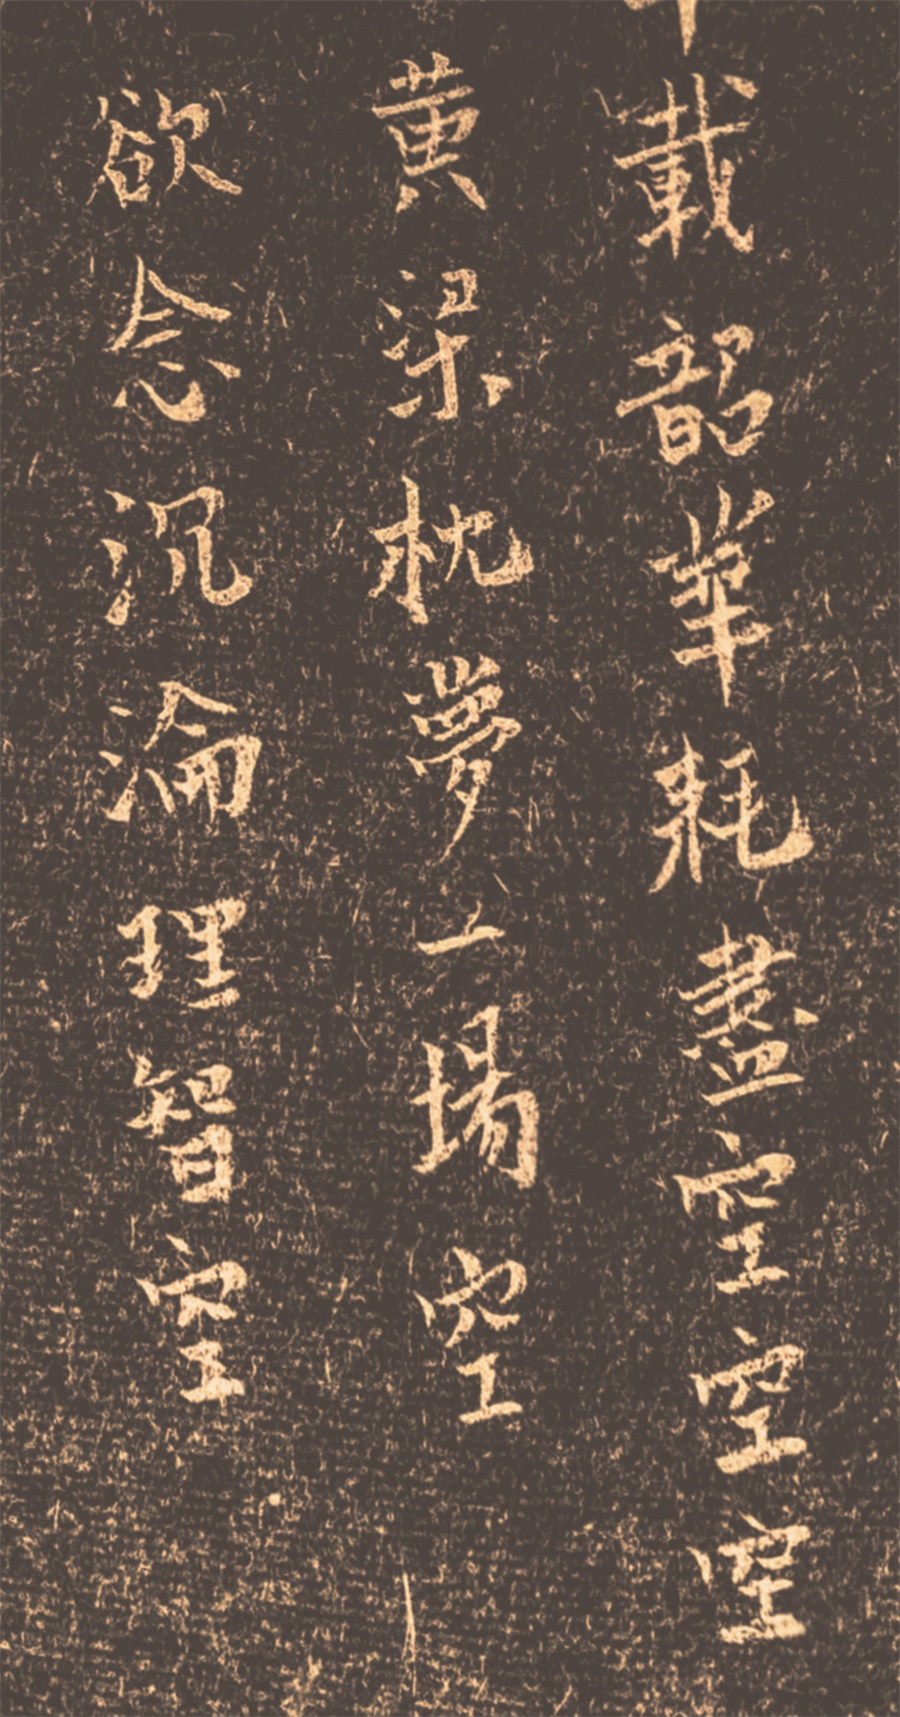 載韶華耗盡空空空
黄梁枕夢一場空
欲念沉淪理智空